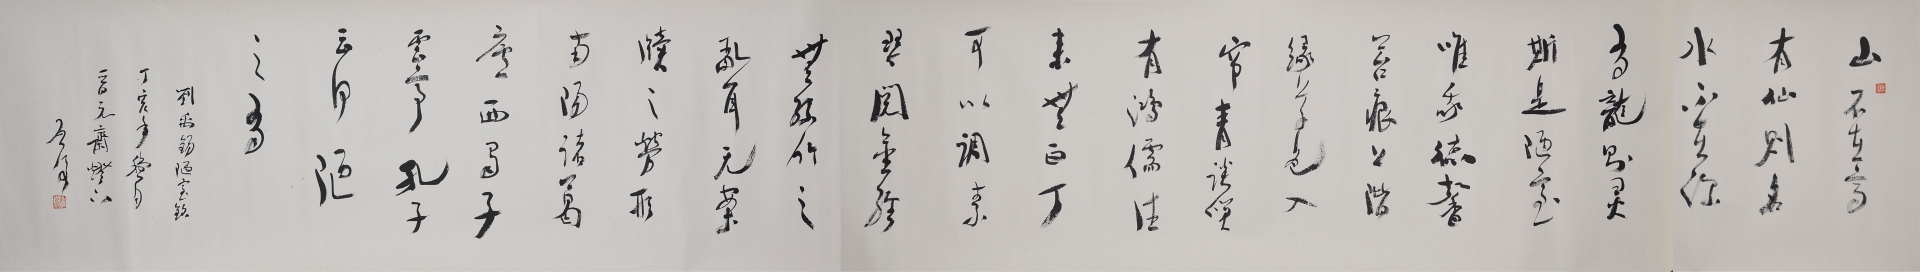 山不在高
有仙则名
水不在深
有龍则灵
斯是陋室
唯吾德馨
苔痕上階
緑草色入
帘青談笑
有鴻儒往
来無白丁
可以調素
琴閱金經
無絲竹之
亂耳无案
牘之勞形
南陽諸葛
廬西蜀子
雲亭孔子
云何陋
之有
劉禹錫陋室銘
丁亥年月
元齋燈下